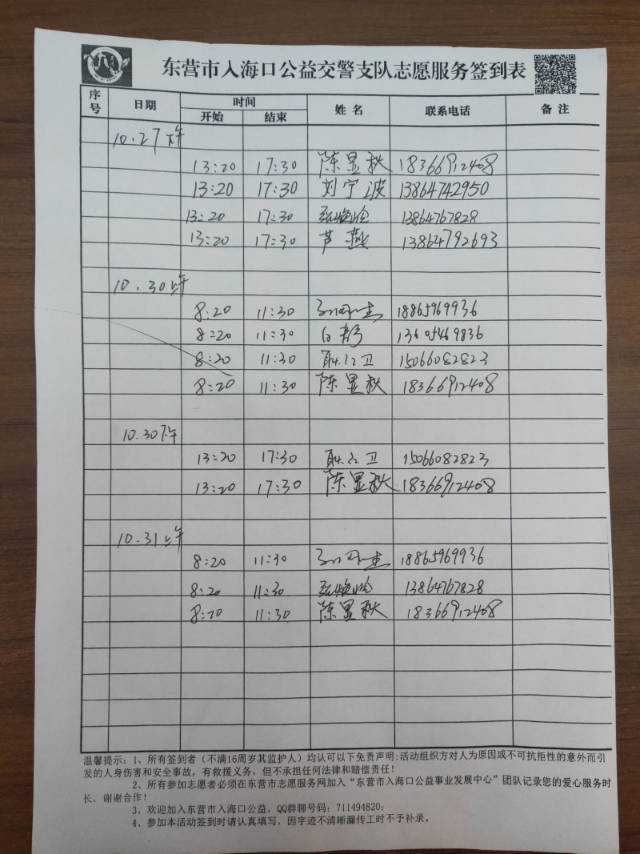 东营市入海口公益交警支队志愿服务签到表
序号 日期 时间 姓名 联系电话 备注
开始 结束
10.27下午
13:20 17:30 陈显秋 18366912408
13:20 17:30 刘宁波 13864742950
13:20 17:30 13864767828
13:20 17:30 芦燕 13864792693
10.30上午
8:20 11:30 18865969936
8:20 11:30 白静 13605469836
8:20 11:30 耿立卫 15066082823
8:20 11:30 陈显秋 18366912408
10.30下午
13:20 17:30 耿立卫 15066082823
13:20 17:30 陈显秋 18366912408
10.31上午
8:20 11:30 18865969936
8:20 11:30 13864767828
8:20 11:30 陈显秋 18366912408
温馨提示:1、所有签到者(不满16周岁其监护人)均认可以下免责声明:活动组织方对人为原因或不可抗拒性的意外而引
发的人身伤害和安全事故,有救援义务,但不承担任何法律和赔偿责任!
2、所有参加志愿者必须在东营市志愿服务网加入“东营市入海口公益事业发展中心”团队记录您的爱心服务时
长,谢谢合作!
3、欢迎加入东营市入海口公益,QQ群聊号码:711494820;
4、参加本活动签到时请认真填写,因字迹不清晰漏传工时不予补录。